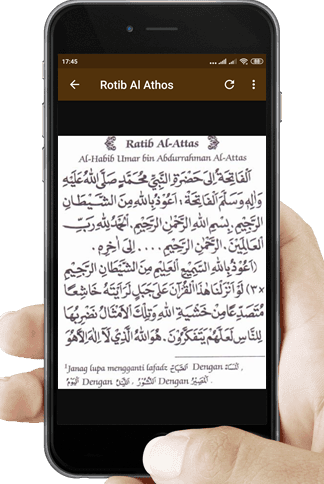 17:45
Rotib Al Athos
Ratib Al-Attas
Al-Habib Umar bin Abdurrahman Al-Attas
اَلْفَاتِحَةُ اِلَى حَضْرَةِ النَّبِيِّ مُحَمَّدٍ صَلَّى اللهُ عَلَيْهِ
وَاٰلِهِ وَسَلَّمَ اَلْفَاتِحَةْ : اَعُوْذُ بِاللهِ مِنَ الشَّيْطَانِ
الرَّجِيْمِ. بِسْمِ اللهِ الرَّحْمٰنِ الرَّحِيْمِ. اَلْحَمْدُ لِلّٰهِ رَبِّ
الْعَالَمِيْنَ. الرَّحْمٰنِ الرَّحِيْمِ .... اِلَى اٰخِرِهِ.
(اَعُوْذُ بِاللهِ السَّمِيْعِ الْعَلِيْمِ مِنَ الشَّيْطَانِ الرَّجِيْمِ
×٣) لَوْ اَنْزَلْنَا هٰذَا الْقُرْاٰنَ عَلَى جَبَلٍ لَرَاَيْتَهُ خَاشِعًا
مُتَصَدِّعًا مِنْ خَشْيَةِ اللهِ وَتِلْكَ الْاَمْثَالُ نَضْرِبُهَا
لِلنَّاسِ لَعَلَّهُمْ يَتَفَكَّرُوْنَ. هُوَ اللهُ الَّذِيْ لَا اِلٰهَ اِلَّا هُوَ
¹Janag lupa mengganti lafadz الصَّبَاحُ Dengan الْمَسَاءُ ,
الْيَوْمَ Dengan اللَّيْلَةَ , النُّشُوْرُ Dengan الْمَصِيْرُ .